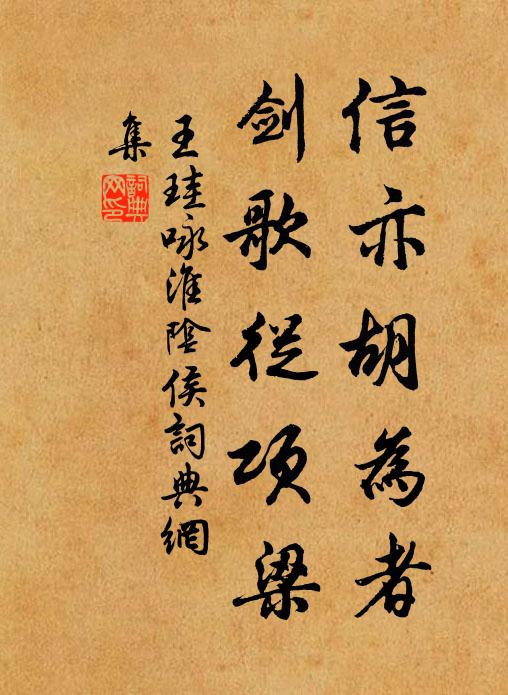 信亦胡為者
剑歌從项梁
王珪咏淮陰侯詞典網
集
詞典
网印